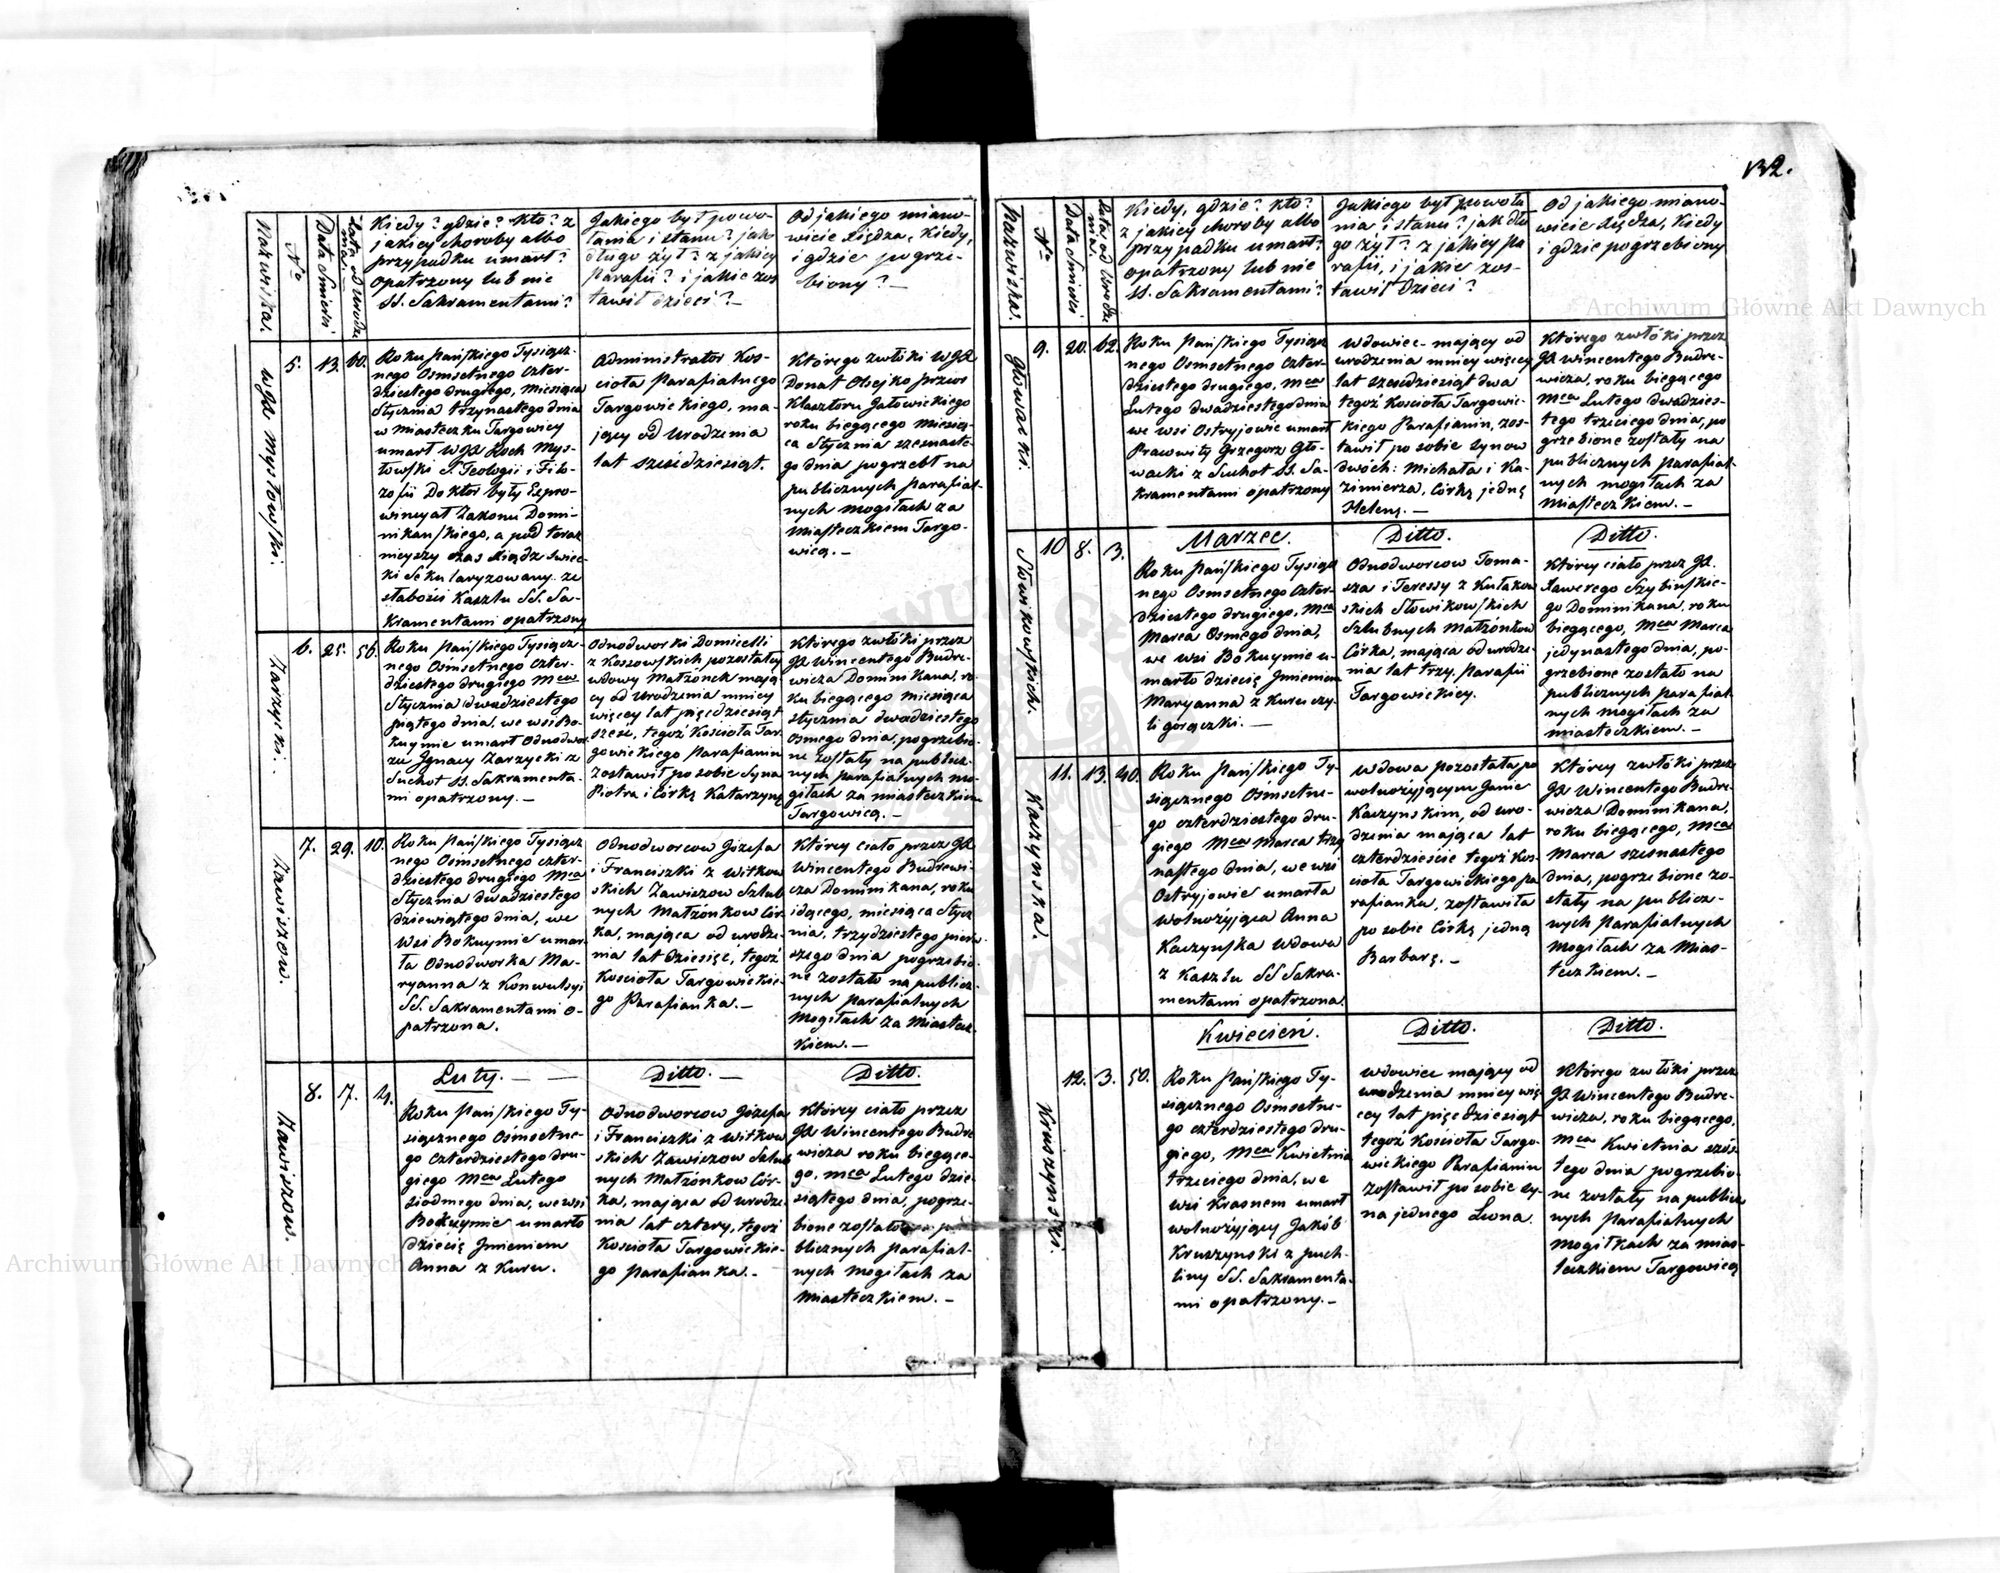 132.
Nazwiska.
Nro
Data Śmierci.
Lata od Urodze
nia.
Kiedy? gdzie? Kto? z
jakiey choroby albo
przypadku umarł?
opatrzony lub nie
SS. Sakramentami?
Jakiego był powo-
łania i stanu? jak
długo żył? z jakiey
Parafii? i jakie zos
tawił dzieci?—
Od jakiego miano-
wicie Xiędza, Kiedy,
i gdzie pogrze-
biony?—
5.
13.
60.
Roku Pańskiego Tysiącz-
nego Osmsetnego Czter-
dziestego drugiego, Miesiąca
Stycznia trzynastego dnia
w Miasteczku Targowicy
umarł WJX Roch Mys-
łowski S. Teologii i Filo-
zofii Doktor były Expro-
wincyał Zakonu Domi-
nikańskiego, a pod teraz
nieyszy czas Xiądz Swiec-
ki Sekularyzowany ze
słabości Kaszlu SS. Sa-
kramentami opatrzony
Administrator Kos-
cioła Parafialnego
Targowickiego, ma-
jący od Urodzenia
lat sześćdziesiąt.
Którego zwłóki WJX
Donat Olsejko przeor
Klasztoru Jałowickiego
roku biegącego Miesią-
ca Stycznia szesnaste-
go dnia pogrzebł na
publicznych parafial-
nych mogiłach za
Miasteczkiem Targo-
wicą.—
6.
25.
56.
Zarzycki.
Roku Pańskiego Tysiącz-
nego Osmsetnego czter-
dziestego drugiego Mca
Stycznia dwudziestego
piątego dnia, we wsi Bo-
kuymie umarł Odnodwor
zec Ignacy Zarzycki z
Suchot SS. Sakramenta-
mi opatrzony.—
Odnodworki Domicelli
z Kossowskich pozostałey
wdowy Małżonek mają
cy od Urodzenia mniey
więcey lat pięćdziesiąt
sześć, tegoż Kościoła Tar
gowickiego Parafianin
Zostawił po sobie Syna
Piotra i Córkę Katarzynę
Którego zwłóki przez
JX Wincentego Budre-
wicza Dominikana, ro-
ku biegącego miesiąca
stycznia dwudziestego
osmego dnia, pogrzebio-
ne zostały na publicz-
nych parafialnych mo-
giłach za miasteczkiem
Targowicą.—
7.
29.
10.
Zawiszow.
Roku Pańskiego Tysiącz
nego Osmsetnego czter-
dziestego drugiego Mca
Stycznia dwudziestego
dziewiątego dnia, we
Wsi Bokuymie umar-
ła Odnodworka Ma-
ryanna z Konwulsyi
SS. Sakramentami o-
patrzona.
Odnodworcow Józefa
i Franciszki z Witkow
skich Zawiszow Szlub
nych Małżonkow Cór
ka, mająca od urodze-
nia lat dziesięć, tegoż
Kościoła Targowickie-
go Parafianka.—
Którey ciało przez JX
Wincentego Budrewi-
cza Dominikana, roku
idącego, miesiąca Stycz
nia, trzydziestego pierw-
szego dnia pogrzebio-
ne zostało na publicz-
nych parafialnych
Mogiłach za Miastecz-
kiem.—
8.
7.
4.
Zawiszow.
Luty.—
Roku Pańskiego Ty-
siącznego Ośmsetne-
go czterdziestego dru-
giego Mca Lutego
siodmego dnia, we wsi
Bokuymie umarło
dziecię Jmieniem
Anna z Kuru.
Ditto.—
Odnodworcow Józefa
i Franciszki z Witkow
skich Zawiszow Szlub
nych Małżonkow Cór-
ka, mająca od urodze-
nia lat cztery, tegoż
Kościoła Targowickie-
go parafianka.—
Ditto.
Którey ciało przez
JX Wincentego Budre
wicza roku biegące-
go, mca Lutego dzie-
siątego dnia, pogrze-
bione zostało na pu-
blicznych parafial-
nych Mogiłach za
Miasteczkiem.—
Nazwiska.
Nro
Data Śmierci
Lata od Urodze
nia.
Kiedy, gdzie? kto?
z jakiey choroby albo
przypadku umarł?
opatrzony lub nie
SS. Sakramentami?
Jakiego był powoła
nia i stanu? jak dłu
go żył? z jakiey pa
rafii, i jakie zos-
tawił Dzieci?
Od jakiego miano-
wicie Xiędza, Kiedy
i gdzie pogrzebiony
9.
20.
62.
Głowacki.
Roku Pańskiego Tysiącz
nego Osmsetnego Czter-
dziestego drugiego, Mca
Lutego dwudziestego dnia
we wsi Ostryjowie umarł
Pracowity Grzegorz Gło-
wacki z Suchot SS. Sa-
kramentami opatrzony
Wdowiec mający od
urodzenia mniey więcey
lat sześćdziesiąt dwa
tegoż Kościoła Targowic-
kiego Parafianin, zos-
tawił po sobie Synow
dwóch: Michała i Ka-
zimierza, Córkę jedną
Helenę.—
Którego zwłóki przez
JX Wincentego Budre-
wicza, roku biegącego
Mca Lutego dwudzies-
tego trzeciego dnia, po
grzebione zostały na
publicznych parafial-
nych mogiłach za
Miasteczkiem.—
10
8.
3.
Słowikowskich.
Marzec.
Roku Pańskiego Tysiącz
nego Osmsetnego Czter-
dziestego drugiego, Mca
Marca Osmego dnia,
we wsi Bokuymie u-
marło dziecię Jmieniem
Maryanna z Kurczy-
li gorączki.—
Ditto.
Odnodworcow Toma-
sza i Teressy z Kułakow
skich Słowikowskich
Szlubnych Małżonkow
Córka, mająca od urodze-
nia lat trzy, Parafii
Targowickiey.
Ditto.
Którey ciało przez JX.
Xawerego Szybińskie-
go Dominikana, roku
biegącego, Mca Marca
jedynastego dnia, po-
grzebione zostało na
publicznych parafial
nych mogiłach za
miasteczkiem.—
11.
13.
40.
Kaczynska.
Roku Pańskiego Ty-
siącznego Ośmsetne-
go czterdziestego dru-
giego Mca Marca trzy
nastego dnia, we wsi
Ostryjowie umarła
wolnożyjąca Anna
Kaczyńska Wdowa
z Kaszlu SS Sakra-
mentami opatrzona.
Wdowa pozostała po
wolnożyjącym Janie
Kaczynskim, od uro-
dzenia mająca lat
czterdzieście tegoż Koś-
cioła Targowickiego pa
rafianka, zostawiła
po sobie Córkę jedną
Barbarę.—
Którey zwłóki przez
JX Wincentego Budre-
wicza Dominikana,
roku biegącego, Mca
Marca szesnastego
dnia, pogrzebione zo-
stały na publicz-
nych Parafialnych
Mogiłach za Mias-
teczkiem.—
12.
3.
50.
Kruszynski.
Kwiecień.
Roku Pańskiego Ty-
siącznego Ośmsetne-
go czterdziestego dru-
giego, Mca Kwietnia
trzeciego dnia, we
wsi Krasnem umarł
wolnożyjący Jakób
Kruszynski z puch-
liny SS. Sakramenta-
mi opatrzony.—
Ditto.
Wdowiec mający od
urodzenia mniey wię-
cey lat pięćdziesiąt
tegoż Kościoła Targo-
wickiego Parafianin
zostawił po sobie sy-
na jednego Leona.
Ditto.
Którego zwłóki przez
JX Wincentego Budre-
wicza, roku biegącego,
Mca Kwietnia szós-
tego dnia pogrzebio-
ne zostały na publicz
nych Parafialnych
Mogiłkach za mias-
teczkiem Targowicą
Archiwum Główne Akt Dawnych
Archiwum Główne Akt Dawnych